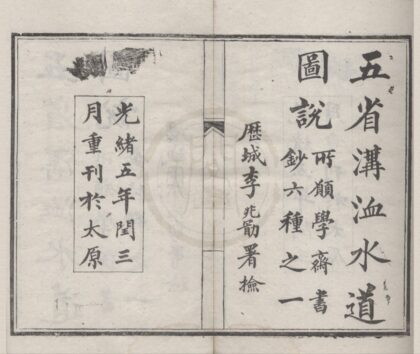 五省溝洫水道
圖説
所願學齋書
鈔六種之一
歷城李兆勖署檢
光緒五年閏三
月重刊於太原